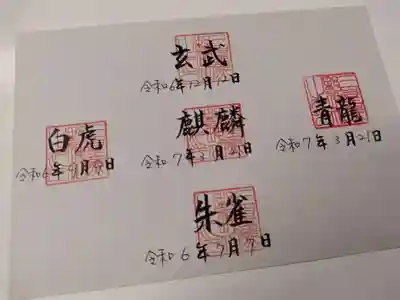 玄武
令和6年12月12日
白虎
令和6年9月9日
麒麟
令和7年3月21日
青龍
令和7年3月21日
朱雀
令和6年7月7日